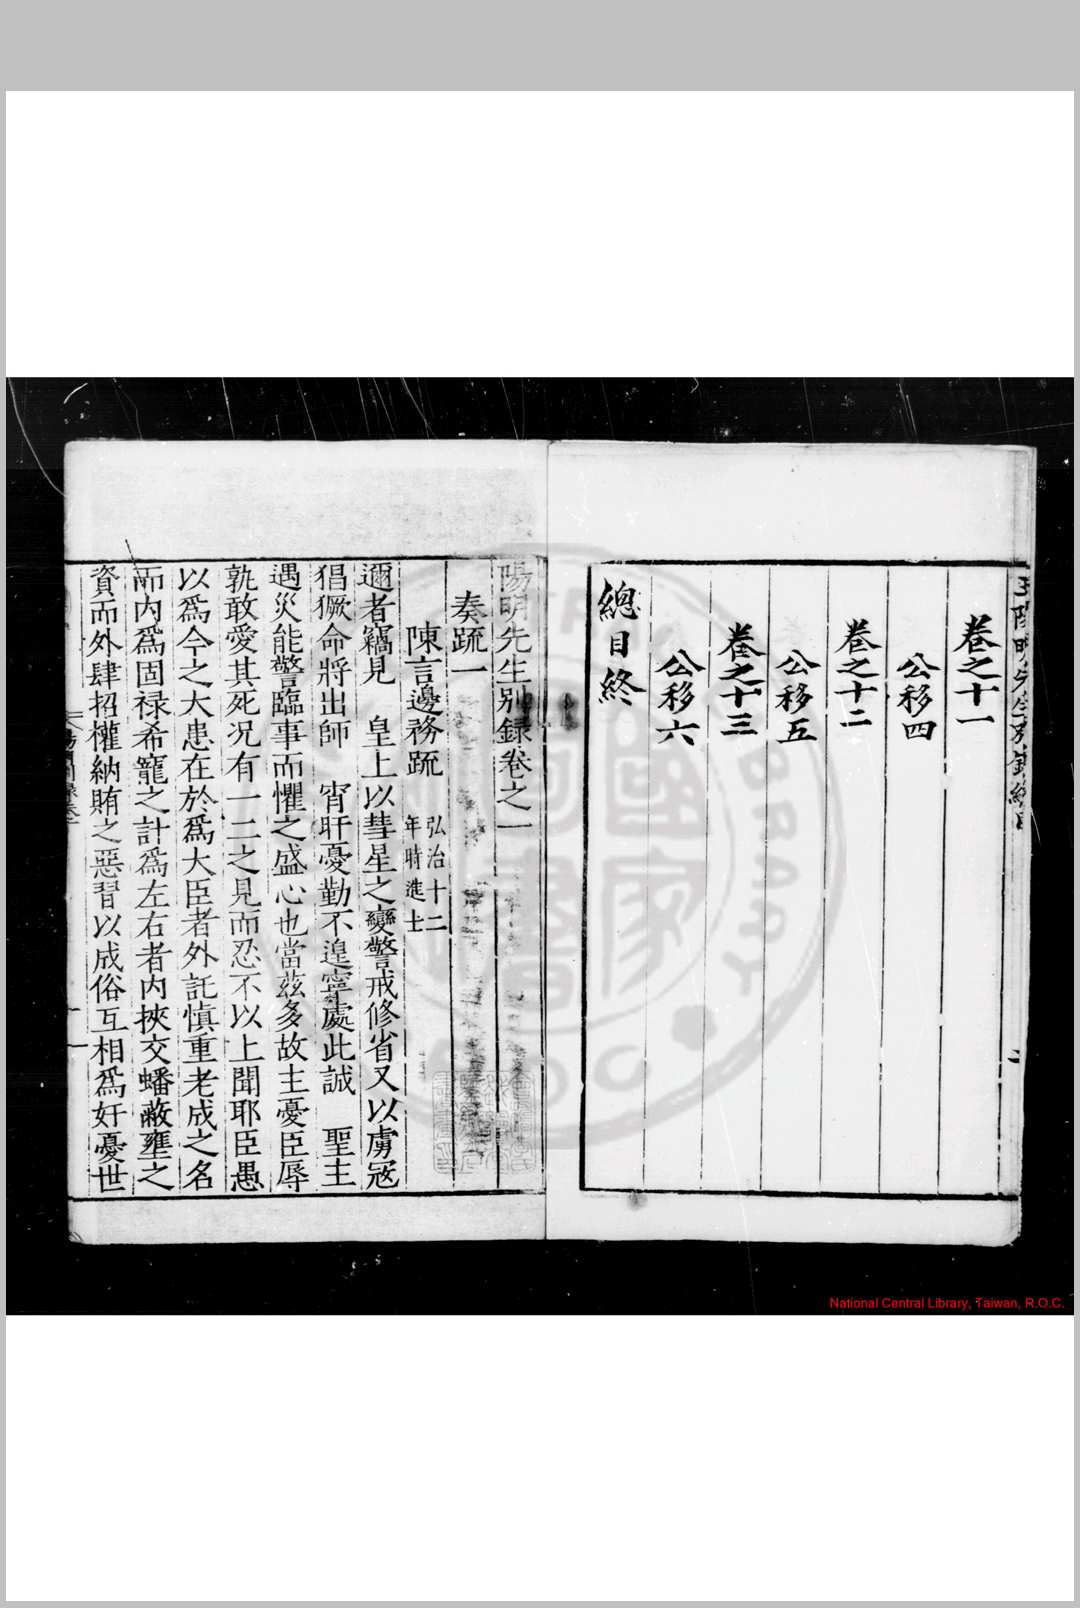 卷之十一
公移四
卷之十二
公移五
卷之十三
公移六
總目終
陽明先生别録卷之一
奏疏一
陳言邊務疏 弘治十二
年時進士
邇者竊見 皇上以彗星之變警戒修省又以虜冦
猖獗命將出師 宵旰憂勤不遑寧處此誠 聖主
遇災能警臨事而懼之盛心也當茲多故主憂臣辱
孰敢愛其死况有一二之見而忍不以上聞耶臣愚
以爲今之大患在於爲大臣者外託慎重老成之名
而内爲固禄希寵之計爲左右者内挾交蟠蔽壅之
資而外肆招權納賄之惡習以成俗互相爲奸憂世
National Central Library, Taiwan, R.O.C.